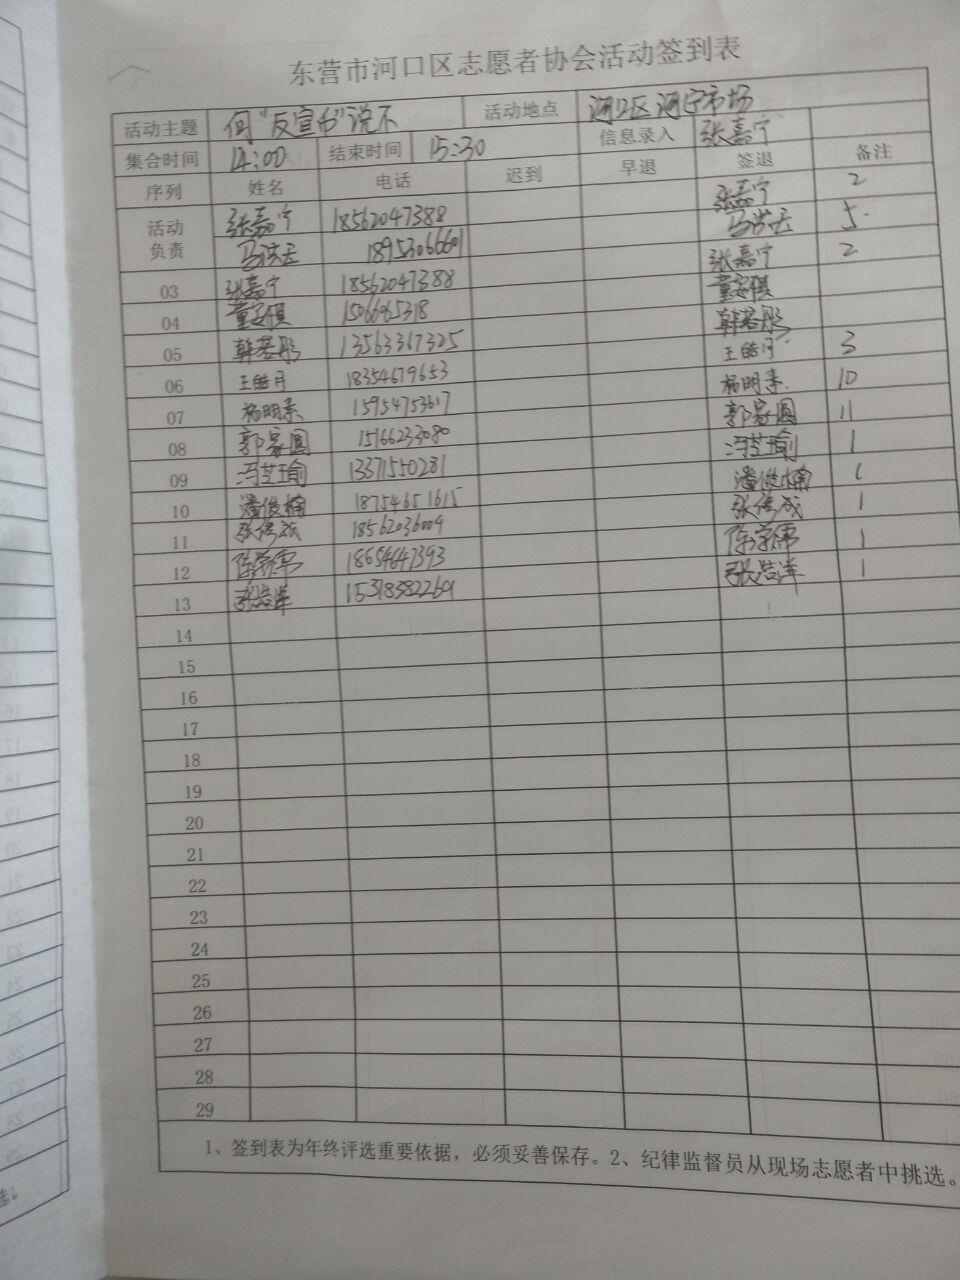 东营市河口区志愿者协会活动签到表
活动主题 向"反宣币"说不 活动地点 河口区河宁市场
集合时间 14:00 结束时间 15:30 信息录入 张嘉宁
序列 姓名 电话 迟到 早退 签退 备注
活动负责 张嘉宁 18562047388 张嘉宁 2
马洪云 18953066601 马洪云 5
03 张嘉宁 18562047388 张嘉宁 2
04 1506665318
05 韩若彤 13563367325 韩若彤
06 王皓月 18354679653 王皓月 3
07 杨明素 15954753617 杨明素 10
08 郭家圆 15166233080 郭家圆 11
09 冯芷瑜 13371550281 冯芷瑜 1
10 潘俊楠 18754651615 潘俊楠 1
11 18562036009 1
12 陈学儒 18654647393 陈学儒 1
13 张浩洋 15318382269 张浩洋 1
14
15
16
17
18
19
20
21
22
23
24
25
26
27
28
29
1、签到表为年终评选重要依据，必须妥善保存。2、纪律监督员从现场志愿者中挑选。